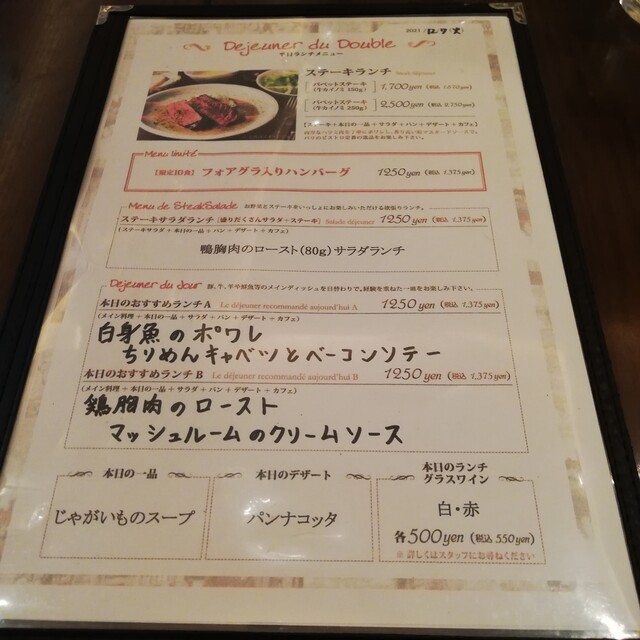 2021 12.7(火)
Dejeuner du Double
平日ランチメニュー
ステーキランチ Steak déjeuner
バベットステーキ
(牛カイノミ 150g) 1,700 yen (税込 1,870 yen)
バベットステーキ
(牛カイノミ 250g) 2,500 yen (税込 2,750 yen)
[ステーキ+本日の一品+サラダ+パン+デザート+カフェ]
Menu limité
【限定10食】フォアグラ入りハンバーグ 1250 yen (税込 1,375 yen)
Menu de SteakSalade お野菜とステーキをいっしょにお楽しみいただける欲張りランチ。
ステーキサラダランチ [盛りだくさんサラダ+ステーキ] Salade déjeuner 1250 yen (税込 1,375 yen)
(ステーキサラダ + 本日の一品 + パン + デザート + カフェ)
鴨胸肉のロースト(80g)サラダランチ
Dejeuner du Jour 豚、牛、羊や鮮魚等のメインディッシュを日替わりで。経験を重ねた一皿をお楽しみ下さい。
本日のおすすめランチA Le déjeuner recommandé aujourd'hui A 1250 yen (税込 1,375 yen)
(メイン料理 + 本日の一品 + サラダ + パン + デザート + カフェ)
白身魚のポワレ
ちりめんキャベツとベーコンソテー
本日のおすすめランチB Le déjeuner recommandé aujourd'hui B 1250 yen (税込 1,375 yen)
(メイン料理 + 本日の一品 + サラダ + パン + デザート + カフェ)
鶏胸肉のロースト
マッシュルームのクリームソース
本日の一品
じゃがいものスープ
本日のデザート
パンナコッタ
本日のランチ
グラスワイン
白・赤
各500 yen (税込 550 yen)
※ 詳しくはスタッフにお尋ねください